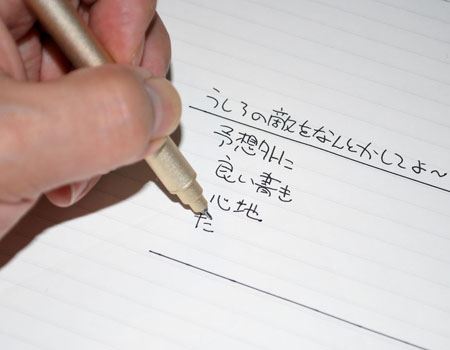 うしろの敵をなんとかしてよ～
予想外に
良い書き
心地
だ